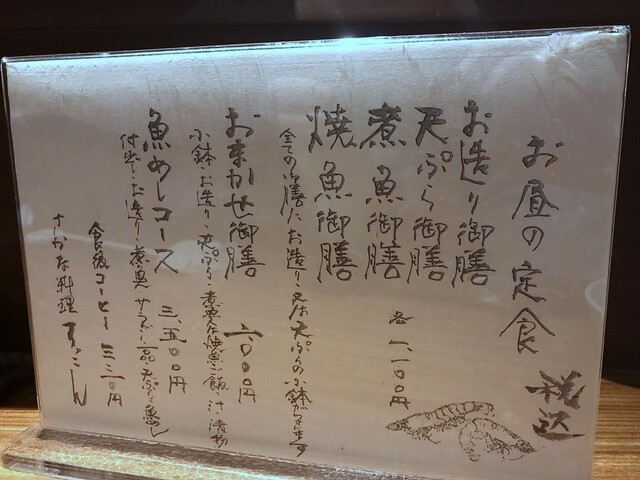 お昼の定食
税込
お造り御膳
天ぷら御膳
煮魚御膳
焼魚御膳
各一、一〇〇円
全ての御膳に、お造り又は天ぷらの小鉢がつきます
おまかせ御膳
小鉢・お造り・天ぷら・煮魚又は焼魚・ご飯・汁・漬物
魚めしコース 三、五〇〇円
付出し・お造り・煮魚 サラダ・一品・天ぷら・魚めし
食後コーヒー 三三〇円
さかな料理